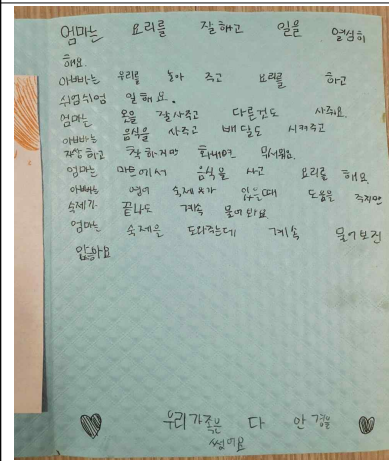 엄마는 요리를 잘해고 일을 열심히
해요.
아빠는 우리를 놀아 주고 요리를 하고
쉬엄쉬엄 일해요.
엄마는 옷을 잘사주고 다른것도 사줘요.
아빠는 음식을 사주고 배달도 시켜주고
자상하고 착하지만 화내면 무서워요.
엄마는 마트에서 음식을 사고 요리를 해요.
아빠는 영어 숙제 가 있을때 도움을 주지만
숙제가 끝나도 계속 물어봐요
엄마는 숙제을 도와주는데 계속 물어보진
않아요
우리가족은 다 안경을
썼어요